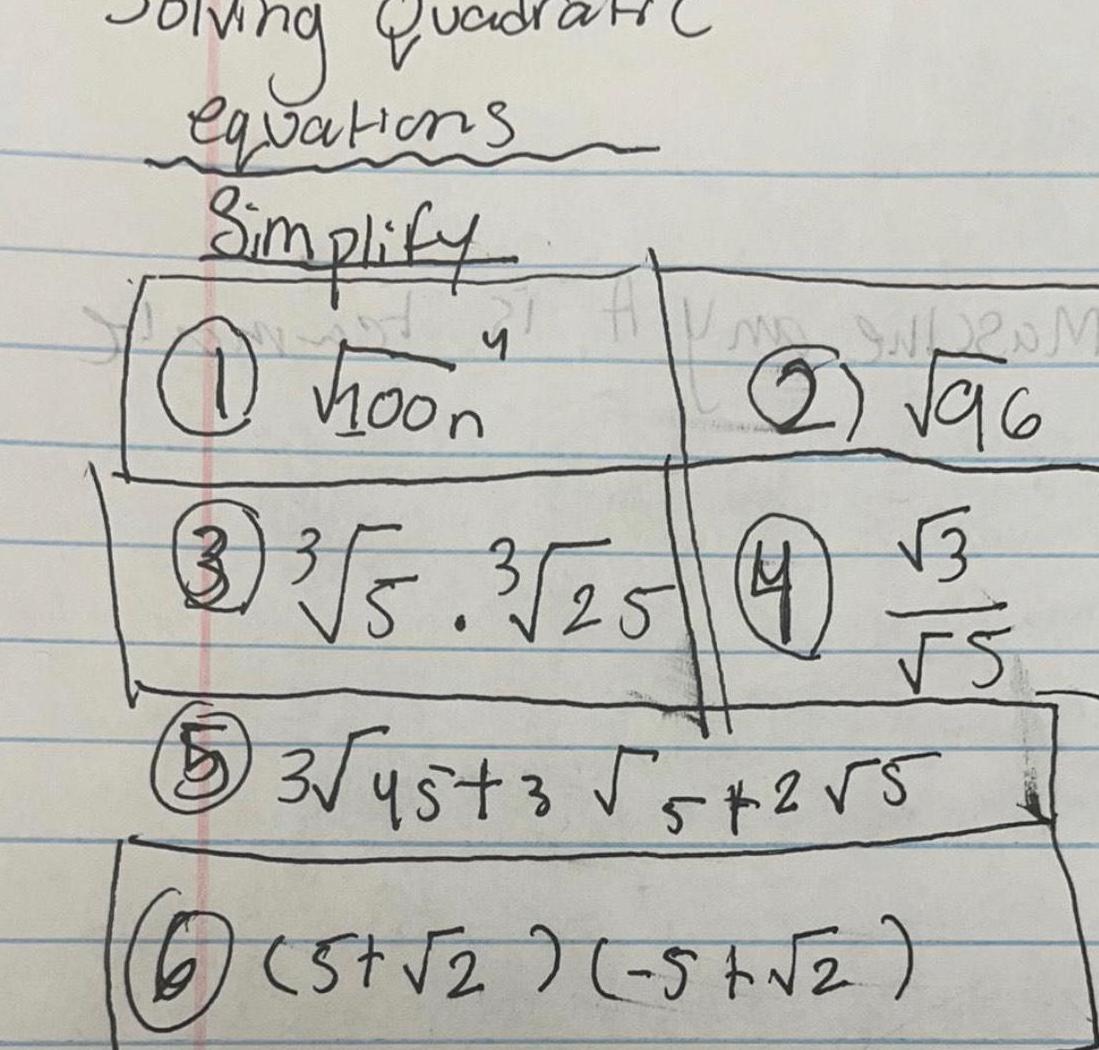 Solving Quadratic
equations
Simplify
① √100n⁴
②) √96
③ ³√5 · ³√25
④ √3/√5
⑤ 3√45+3√5+2√5
⑥ (5+√2)(-5+√2)